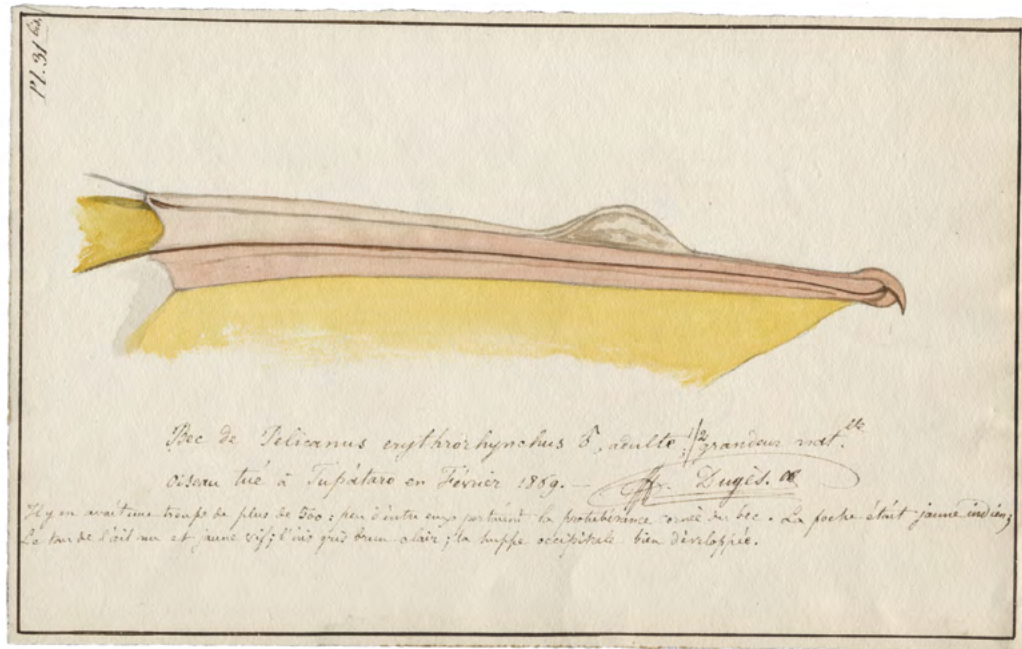 Pl. 31 bis.
Bec de Pelicanus erythrorhynchus ♂, adulte; 1/2 grandeur nat.lle
oiseau tué à Tupátaro en Février 1869. — Alf. Dugès.
Il y en avait une troupe de plus de 500; peu d'entre eux portaient la protubérance cornée du bec. La poche était jaune indien;
Le tour de l'œil nu et jaune vif; l'iris gris brun clair; la huppe occipitale bien développée.